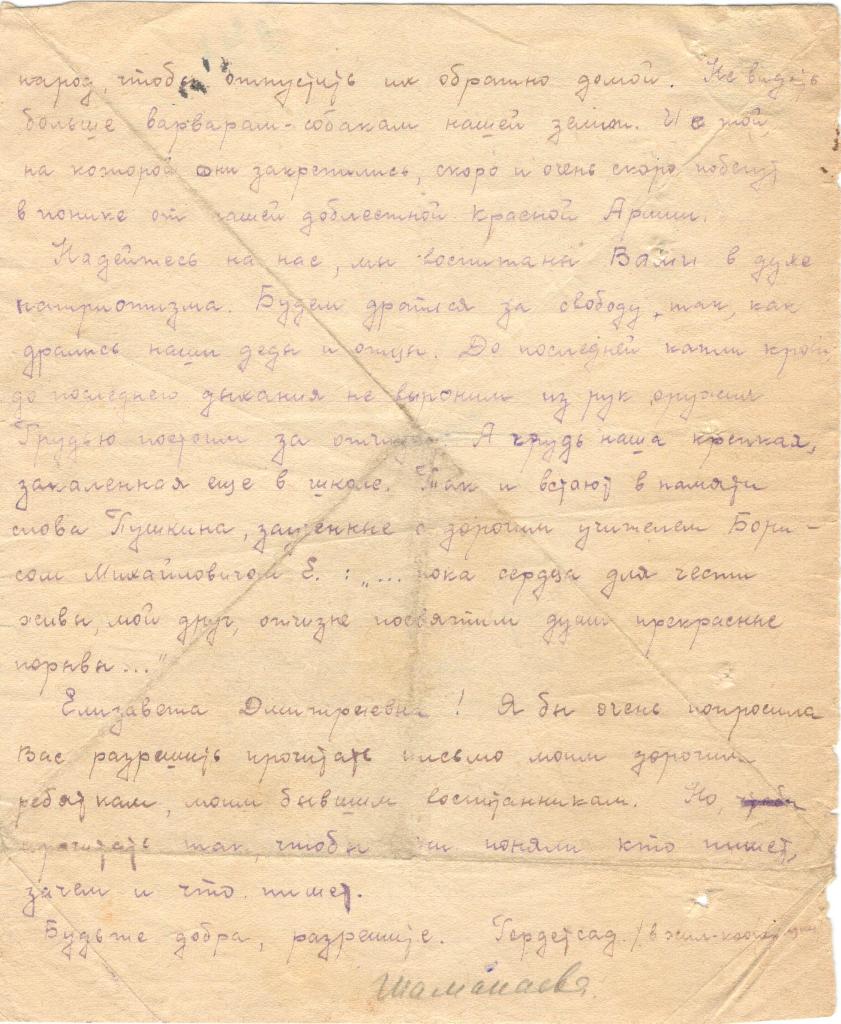 народ, чтобы отпустить их обратно домой. Не видать
больше варварам-собакам нашей земли. И с той
на которой они закрепились, скоро и очень скоро побегут
в понике от нашей доблестной Красной Армии.
Надейтесь на нас, мы воспитаны Вами в духе
патриотизма. Будем драться за свободу, так, как
дрались наши деды и отцы. До последней капли крови
до последнего дыхания не выроним из рук оружия
Грудью постоим за отчизну. А грудь наша крепкая,
закаленная еще в школе. Так и встают в памяти
слова Пушкина, заученные с дорогим учителем Бори-
сом Михайловичом Е. : „... пока сердца для чести
живы, мой друг, отчизне посвятим души прекрасные
порывы..."
Елизавета Дмитриевна! Я бы очень попросила
Вас разрешить прочитать письмо моим дорогим
ребяткам, моим бывшим воспитанникам. Но,
прочитать так, чтобы они поняли кто пишет,
зачем и что пишет.
Будьте добра, разрешите. Гордетсад /в
Шаманаева